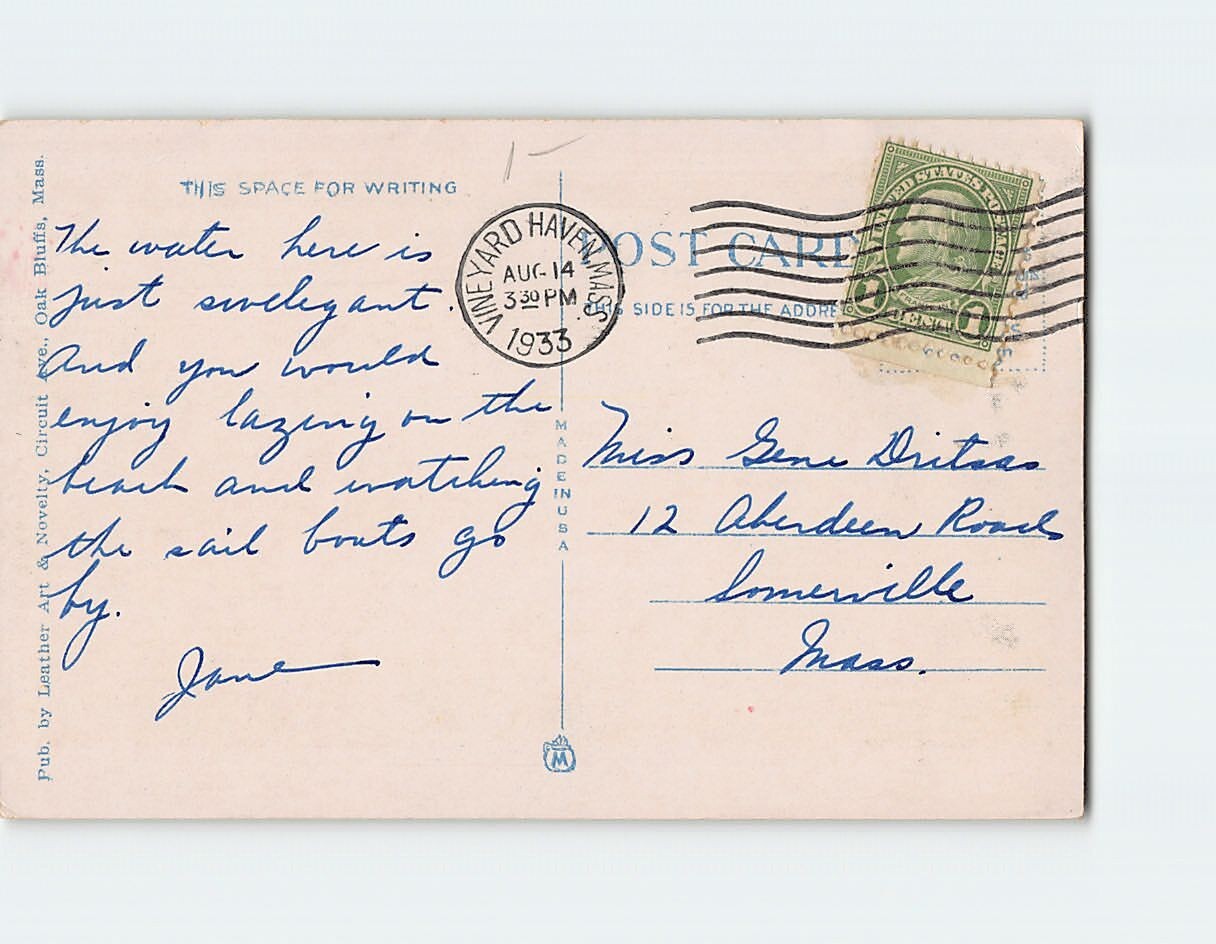 THIS SPACE FOR WRITING
The water here is
just swelegant.
And you would
enjoy lazing on the
beach and watching
the sail boats go
by.
Jane
Pub. by Leather Art & Novelty, Circuit Ave., Oak Bluffs, Mass.
VINEYARD HAVEN, MASS.
AUG 14
3 30 PM
1933
MADE IN USA
M
POST CARD
THIS SIDE IS FOR THE ADDRE
UNITED STATES POSTAGE
1 CENT 1
Miss Gene Dritsas
12 Aberdeen Road
Somerville
Mass.